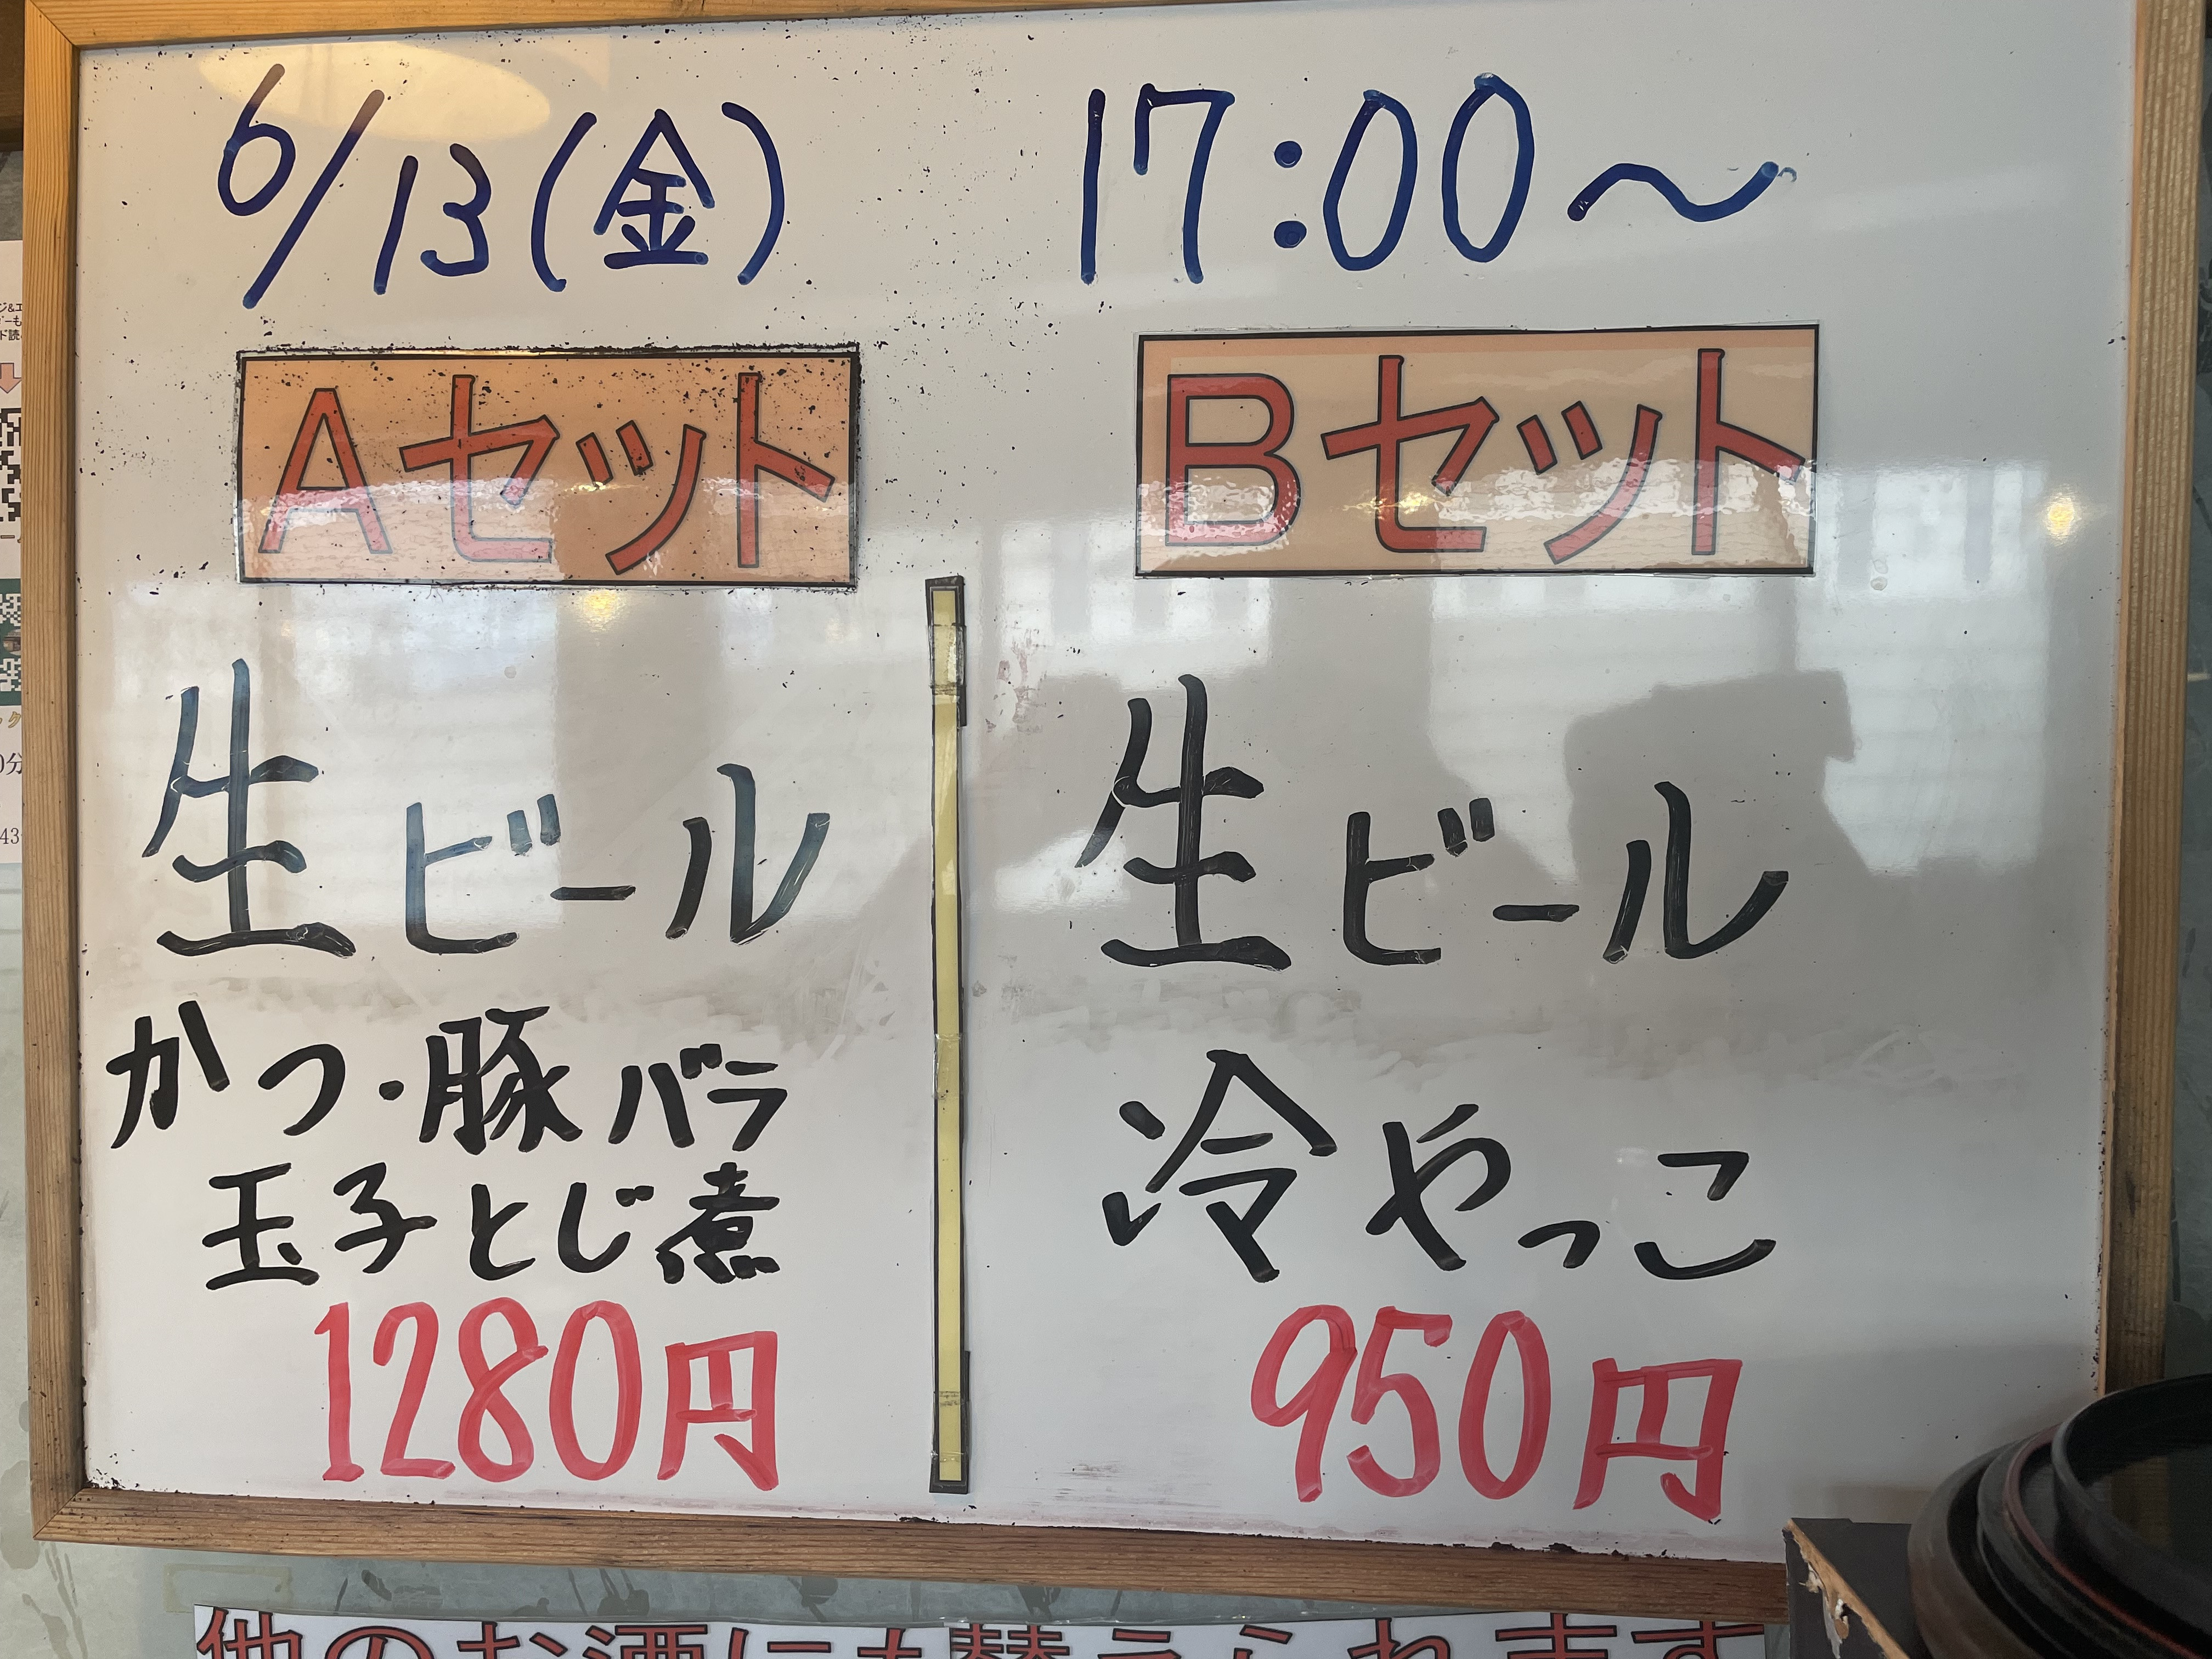 6/13(金) 17:00〜
Aセット
生ビール
かつ・豚バラ
玉子とじ煮
1280円
Bセット
生ビール
冷やっこ
950円
他のお酒にも替えられます